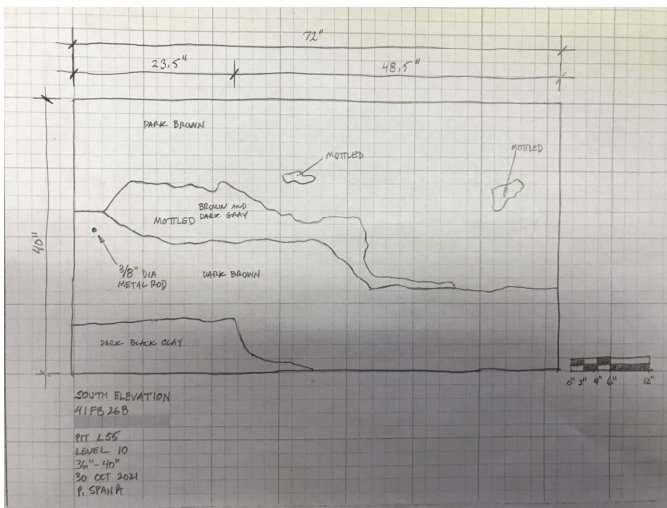 72"
23.5"
48.5"
DARK BROWN
MOTTLED
MOTTLED
BROWN AND
MOTTLED DARK GRAY
40"
3/8" DIA
METAL ROD
DARK BROWN
DARK BLACK CLAY
0" 2" 4" 6" 12"
SOUTH ELEVATION
41FB268
PIT L55
LEVEL 10
36"-40"
30 OCT 2021
P. SPANA